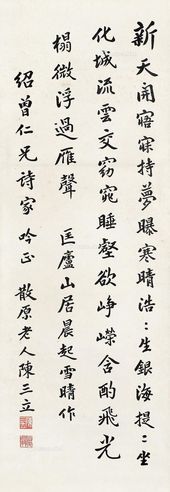 新天開寤寐持夢曝寒晴浩：生銀海提：坐
化城流雲交窈窕睡壑欲崢嶸舍酌飛光
榻微浮過雁聲　匡廬山居晨起雪晴作
紹曾仁兄詩家　吟正　散原老人陳三立